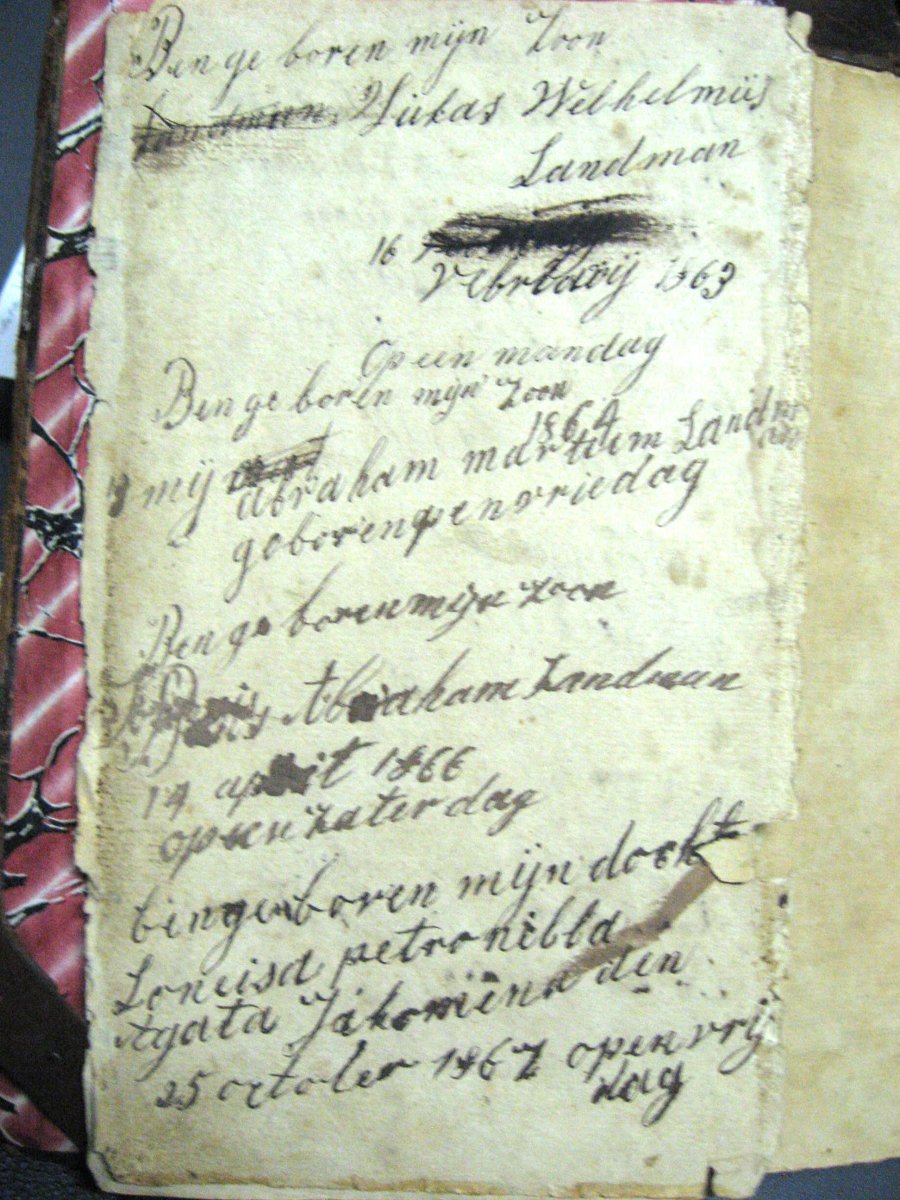 Ben ge boren mijn zoon
Landman Lukas Welhelmus
Landman
16
Vebruarij 1863
Op een mandag
Ben ge boren mijn zoon
1864
mij abraham martiem Landman
geboren open vriedag
Ben ge boren mijn zoon
Abraham Landman
14 april 1866
op een zater dag
ben ge boren mijn docht
Loneisa petronella
Agata Jakomina den
25 october 1867 open vrij
dag